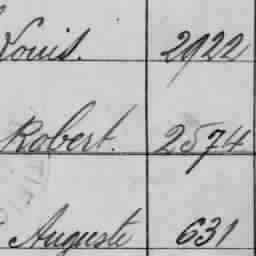 Louis. 2922
Robert. 2574
Auguste 631